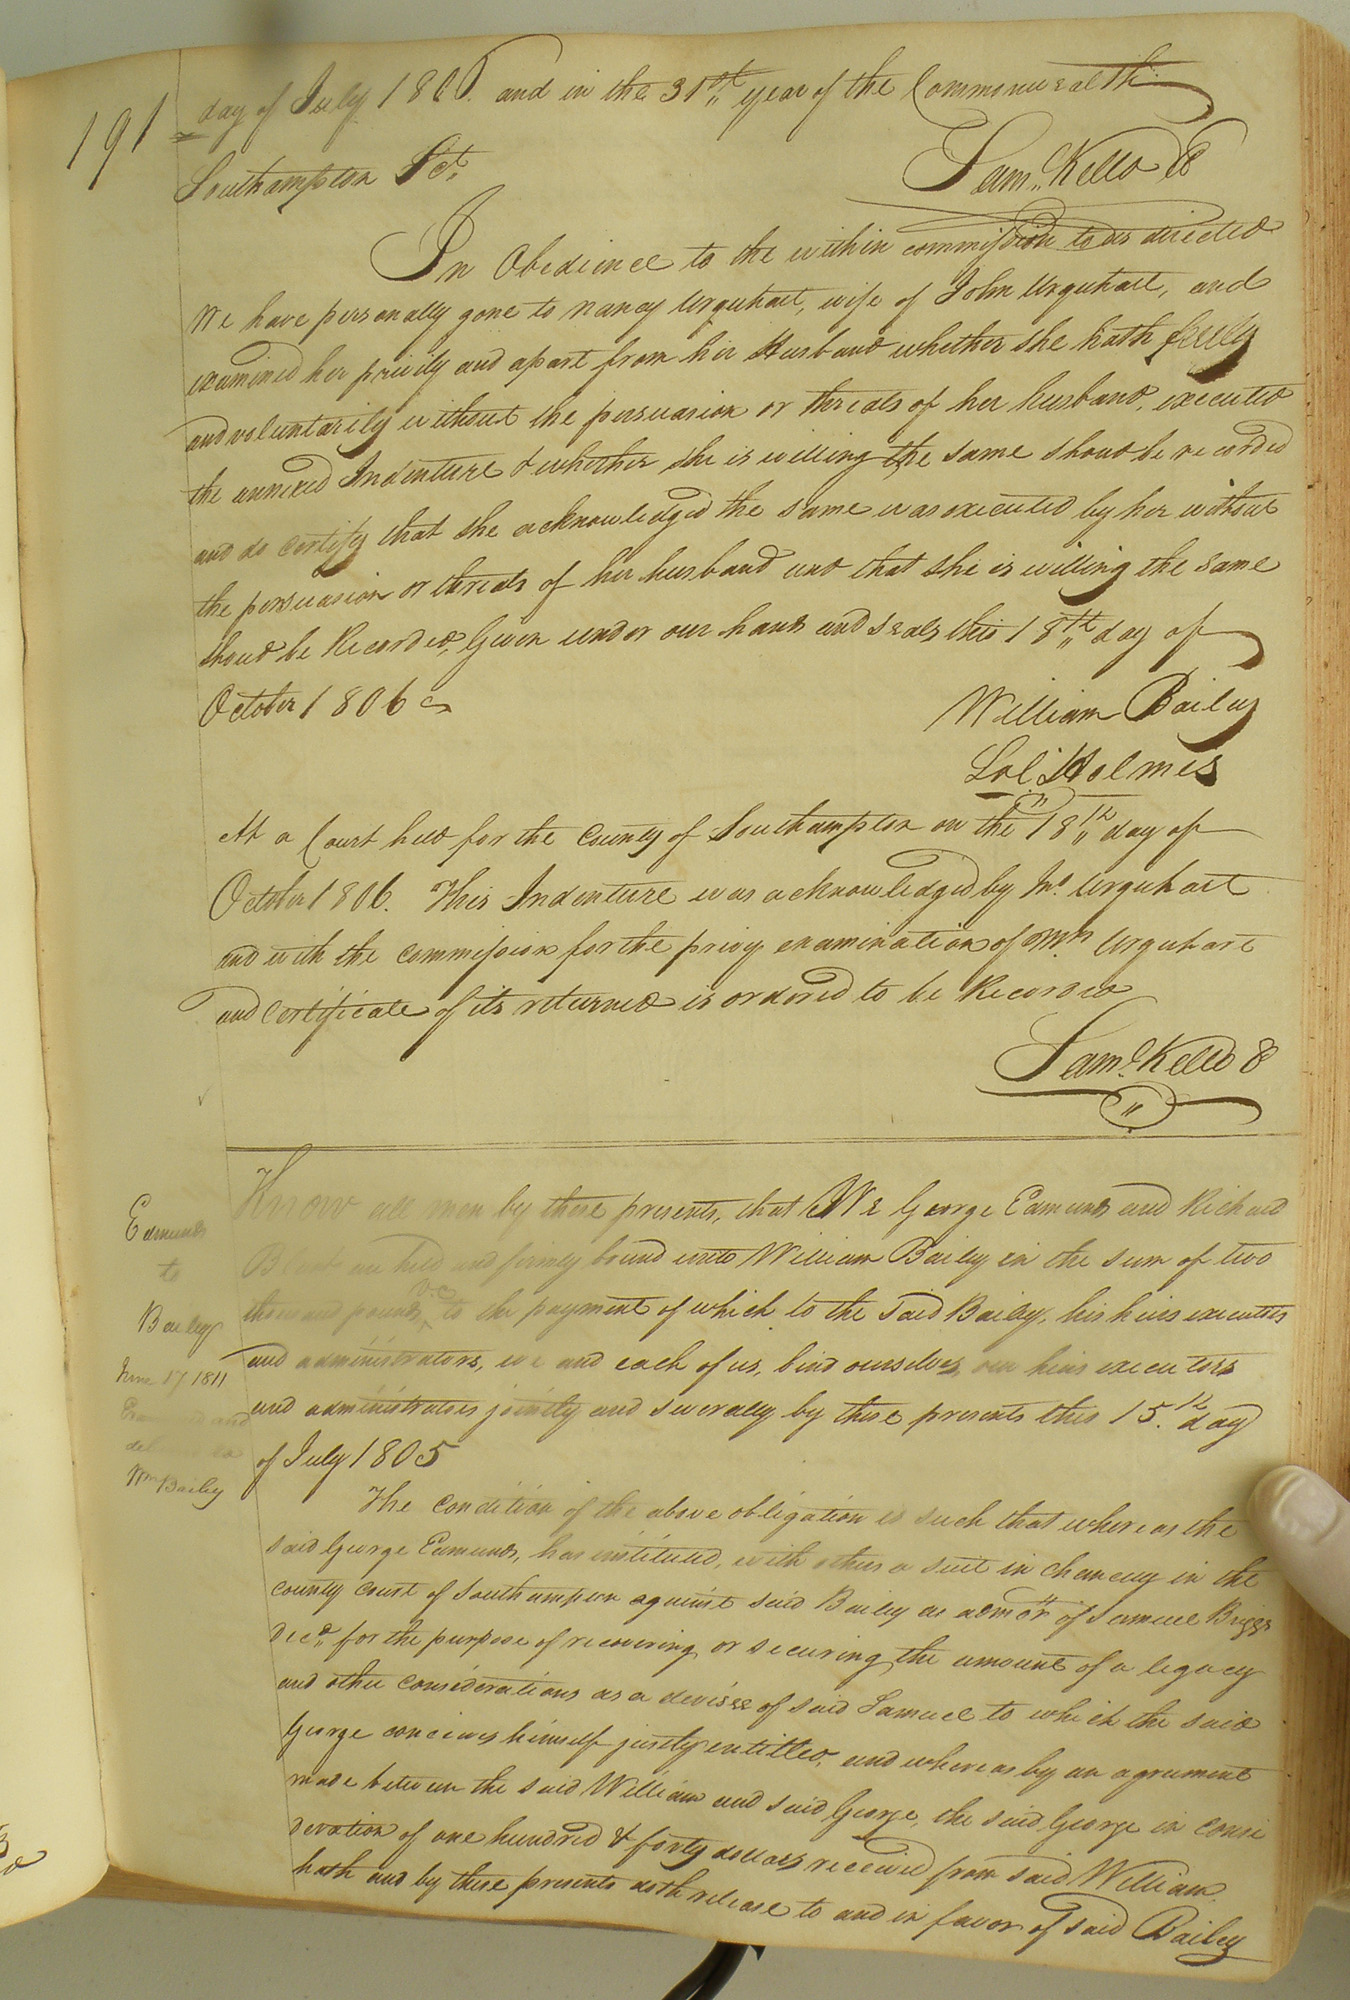 191
day of July 1806. and in the 31st year of the Commonwealth.
Southampton Sct.
Saml. Kello CC
In Obedience to the within commission to us directed
We have personally gone to Nancy Urquhart, wife of John Urquhart, and
examined her privily and apart from her Husband whether she hath freely
and voluntarily without the persuasion or threats of her husband, executed
the annexed Indenture & whether she is willing the same should be recorded
and do certify that she acknowledged the same was executed by her without
the persuasion or threats of her husband and that she is willing the same
should be Recorded, Given under our hands and seals this 18th day of
October 1806
William Bailey
Sol Holmes
At a Court held for the County of Southampton on the 18th day of
October 1806. This Indenture was acknowledged by Mr. Urquhart
and with the commission for the privy examination of Mrs. Urquhart
and Certificate of its returned is ordered to be Recorded
Saml. Kello C
Edmunds
to
Bailey
June 17 1811
Examined and
delivered to
Wm Bailey
Know all men by these presents, that We George Edmunds and Richard
Blunt are held and firmly bound unto William Bailey in the sum of two
thousand pounds, to the payment of which to the said Bailey, his heirs executors
and administrators, we and each of us, bind ourselves, our heirs executors
and administrators jointly and severally by these presents this 15th day
of July 1805
The condition of the above obligation is such that whereas the
said George Edmunds, has instituted, with others a suit in chancery in the
county court of Southampton against said Bailey as admor. of Samuel Briggs
Decd. for the purpose of recovering or securing the amount of a legacy
and other considerations as a devisee of said Samuel to which the said
George conceives himself justly entitled, and whereas by an agreement
made between the said William and said George, the said George in consi
deration of one hundred & forty dollars received from said William
hath and by these presents doth release to and in favor of said Bailey